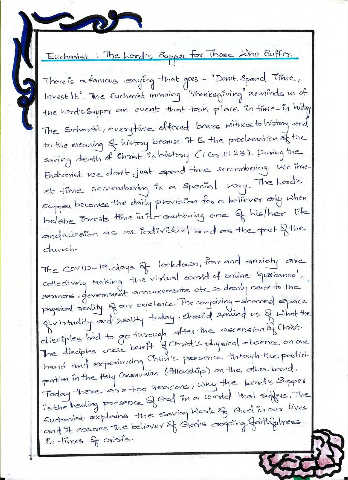 Eucharist - The Lord's Supper for Those Who Suffer.
There is a famous saying that goes - "Don't Spend Time,
Invest it." The Eucharist meaning 'thanksgiving' reminds us of
the Lord's Supper an event that took place in time - in history
The Eucharist, everytime offered bears witness to history and
to the meaning of history because it is the proclamation of the
saving death of Christ in history (1 Cor. 11:23). During the
Eucharist we don't just spend time remembering. We invest
time remembering in a special way. The Lord's
Supper becomes the daily provision for a believer only when
he/she invests time in it - nurturing one of his/her life
and mission as an individual and as the part of the
church.
The COVID-19, days of lockdown, fear and anxiety are
collectively making the virtual world of online
sermons, government announcements etc so dearly near to the
physical reality of our existence. The
of virtuality and reality today should remind us of what the
disciples had to go through after the ascension of Christ.
The disciples were bereft of Christ's physical absence, on one
hand and experiencing Christ's presence through the partici-
pation in the Holy Communion (fellowship) on the other hand.
Today there are two reasons why the Lord's Supper
is the healing presence of God in a world that suffers. The
Eucharist explains the saving work of God in our lives
and it assures the believer of God's faithfulness
in times of crisis.